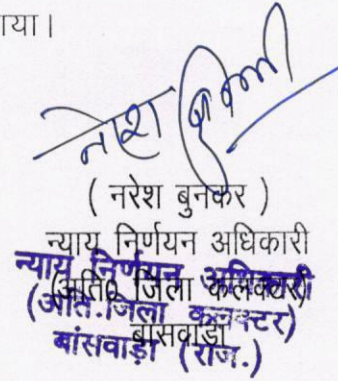 या।
नरेश
( नरेश बुनकर )
न्याय निर्णयन अधिकारी
(अति0 जिला कलक्टर)
बांसवाड़ा
न्याय निर्णयन अधिकारी
(अति.जिला कलक्टर)
बांसवाड़ा (राज.)